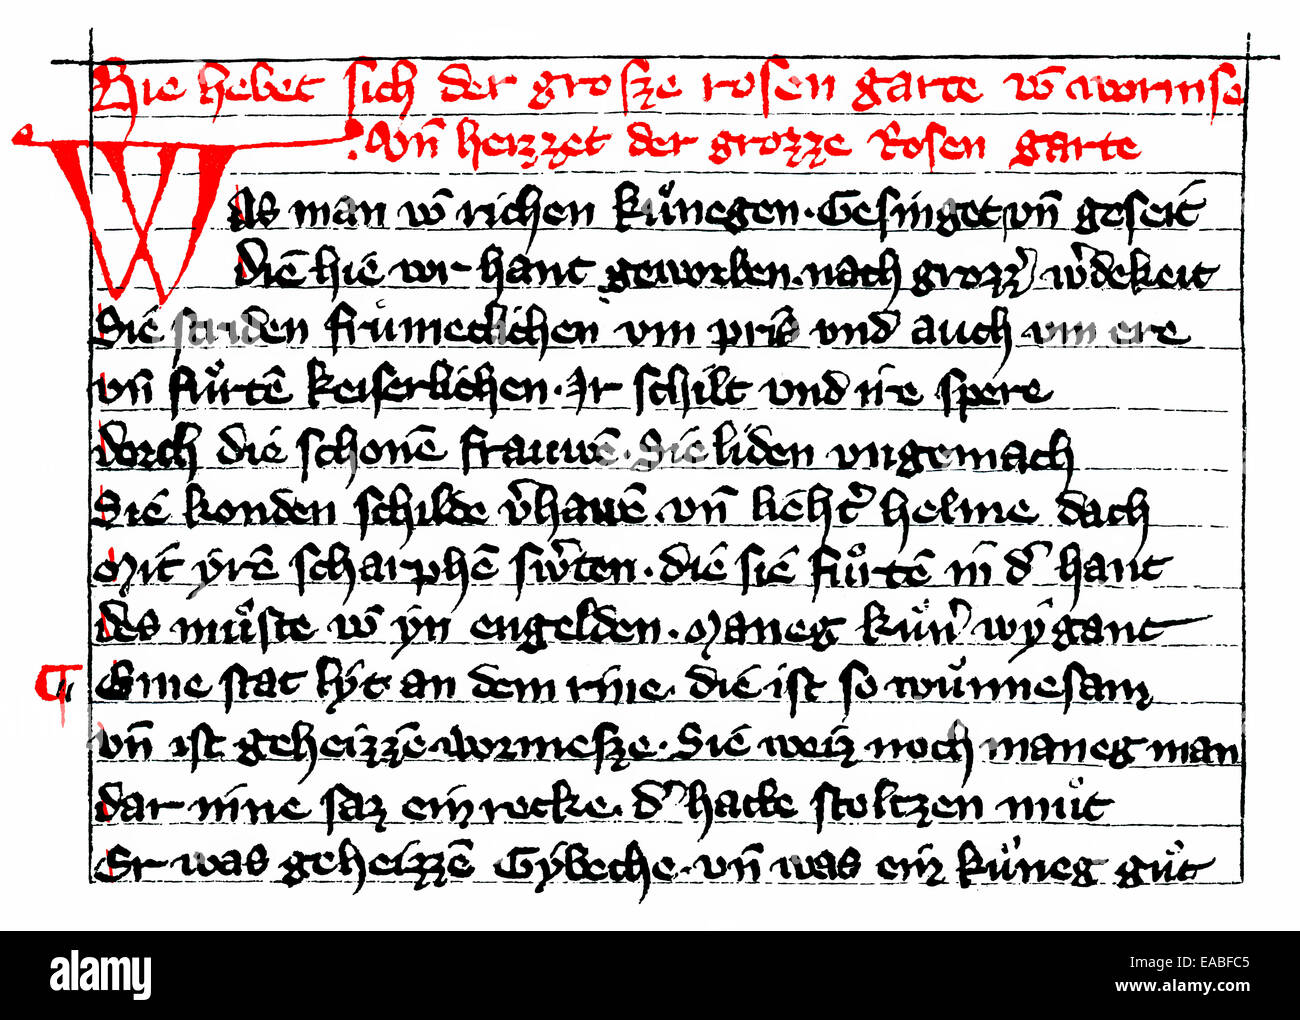 Hie hebet sich der grosze rosen garte vō wormse
Vn̄ heizzet der grozze Rosen garte
Was man vō richen kuͤnegen · Gesinget vn̄ geseit
Die hie vor hant geworben · nach grozz̓ w̓dekeit
Die striden frumeclichen vm pris vnd auch vm ere
vn̄ fuͦrtē keiserlichen · Ir schilt vnd ire spere
dorch die schonē frauwē · Sie liden vngemach
Sie konden schilde v̓hauwē · vn̄ lieht̓ helme dach
Mit yrē scharphē sw̓ten · die sie fuͦrtē in d̓ hant
des muͤste vō yn engelden · Maneg kuͤn̓ wygant
¶ Eine stat lyt an dem rine · die ist so wuͤnnesam
vn̄ ist geheizzē wormesze · Sie weiz noch maneg man
dar inne saz ein recke · d̓ hatte stoltzen muͦt
Er was geheizzē Gybeche · vn̄ was ein kuͤneg guͦt
alamy
alamy
Image ID: EABFC5
www.alamy.com